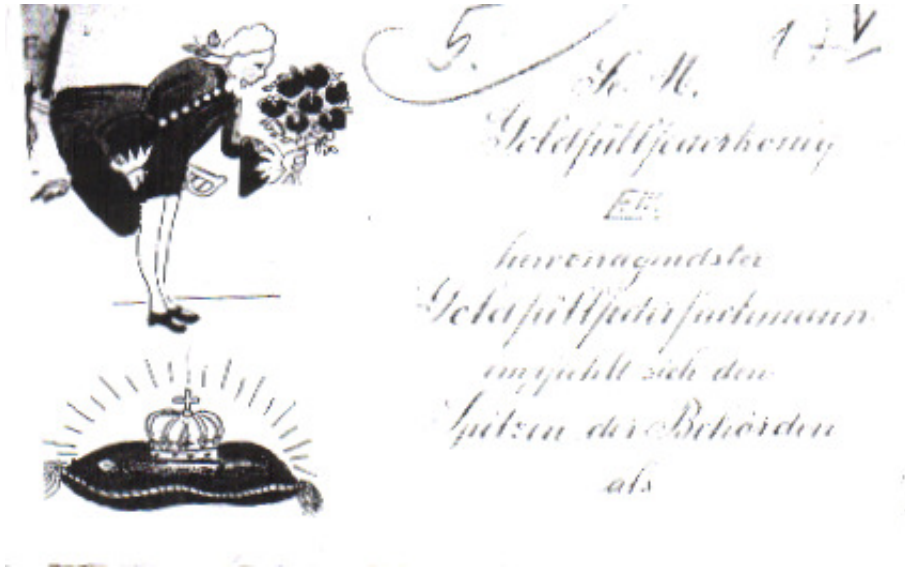 5.
Se. M.
Goldfüllfederkönig
E.W.
hervorragendster
Goldfüllfederfachmann
empfiehlt sich den
Spitzen der Behörden
als